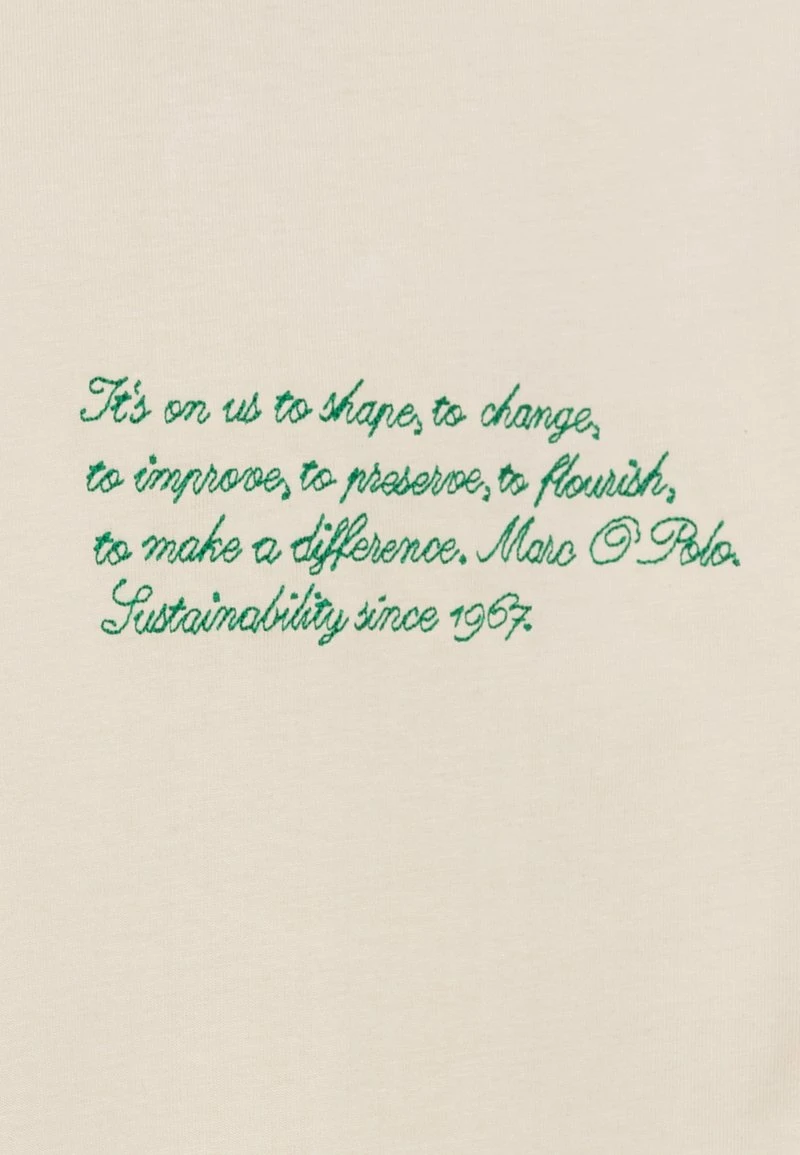 It's on us to shape, to change,
to improve, to preserve, to flourish,
to make a difference. Marc O'Polo.
Sustainability since 1967.